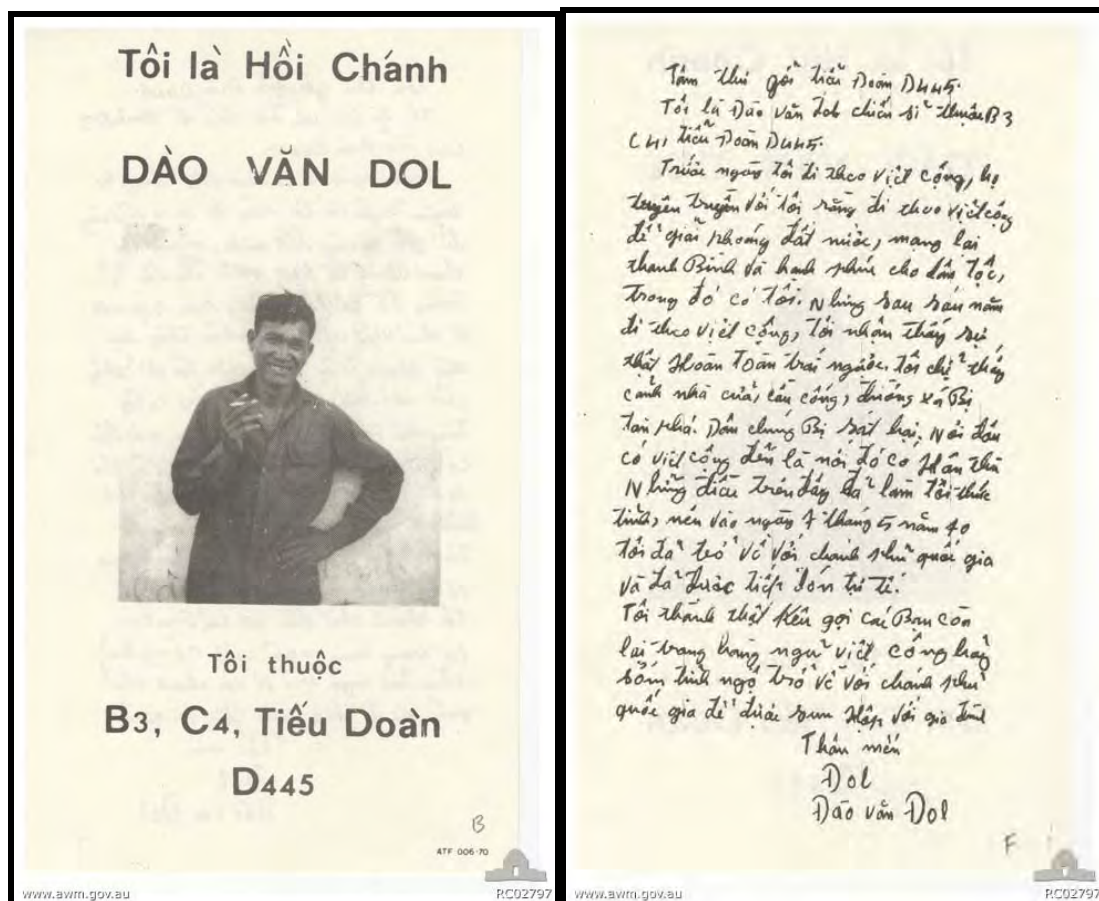 Tôi là Hồi Chánh
DÀO VĂN DOL
Tôi thuộc
B3, C4, Tiếu Doàn
D445
B
ATF 006-70
www.awm.gov.au
RC02797
Tâm thư gởi tiểu Đoàn D445.
Tôi là Đào văn Dol chiến sĩ thuộc B3
C4, tiểu Đoàn D445.
Trước ngày tôi đi theo việt cộng, họ
tuyên truyền với tôi rằng đi theo việt cộng
để giải phóng đất nước, mang lại
thanh Bình và hạnh phúc cho dân tộc,
trong đó có tôi. Nhưng sau sáu năm
đi theo việt cộng, tôi nhận thấy sự
thật Hoàn Toàn trái ngược. tôi chỉ thấy
cảnh nhà cửa, cầu cống, đường xá Bị
tàn phá. Dân chúng Bị sát hại. Nơi đâu
có việt cộng đến là nơi đó có Hận thù
Những điều trên đây đã làm tôi thức
tỉnh, nên vào ngày 7 tháng 5 năm 70
tôi đã trở về với chánh phủ quốc gia
và đã được tiếp đón tử tế.
Tôi thành thật kêu gọi các Bạn còn
lại trong hàng ngũ việt cộng hãy
sớm tỉnh ngộ trở về với chánh phủ
quốc gia để được sum Họp với gia đình
Thân mến
Đol
Đào văn Đol
F
www.awm.gov.au
RC02797